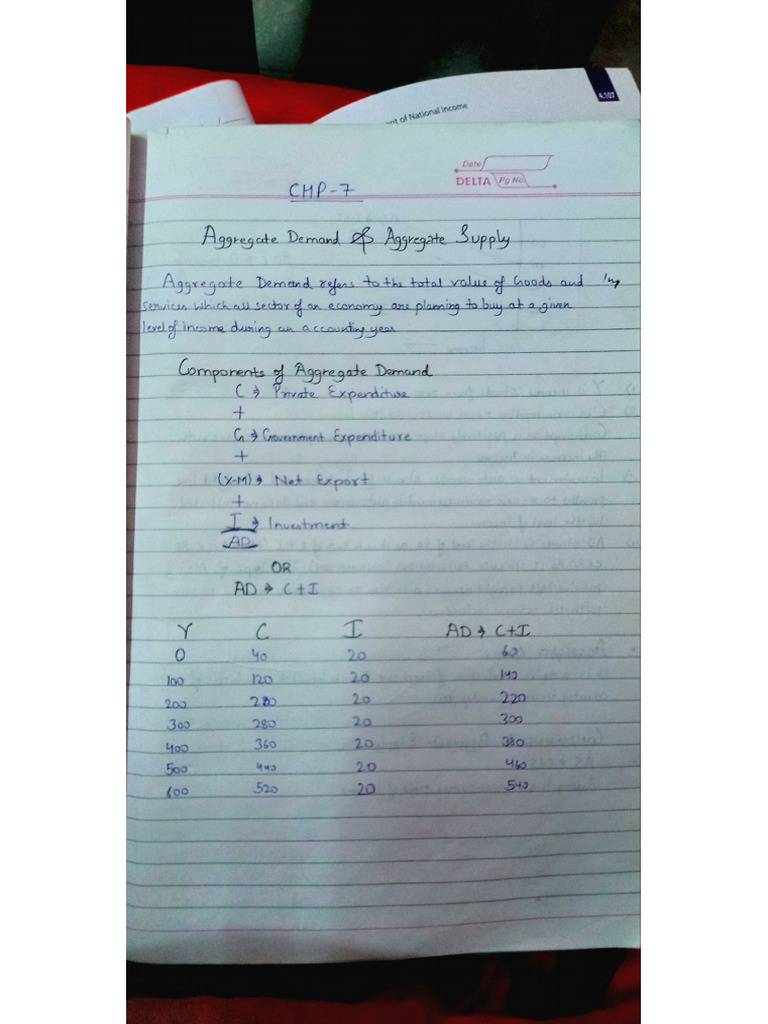 4.107
nt of National Income
Date
DELTA Pg No.
CHP-7
Aggregate Demand & Aggregate Supply
Aggregate Demand refers to the total value of Goods and
services which all sector of an economy are planning to buy at a given
level of income during an accounting year
Components of Aggregate Demand
C → Private Expenditure
+
G → Government Expenditure
+
(X-M) → Net Export
+
I → Investment
AD
OR
AD → C+I
Y C I AD → C+I
0 40 20 60
100 120 20 140
200 20 220
300 280 20 300
400 360 20 380
500 440 20 460
600 520 20 540